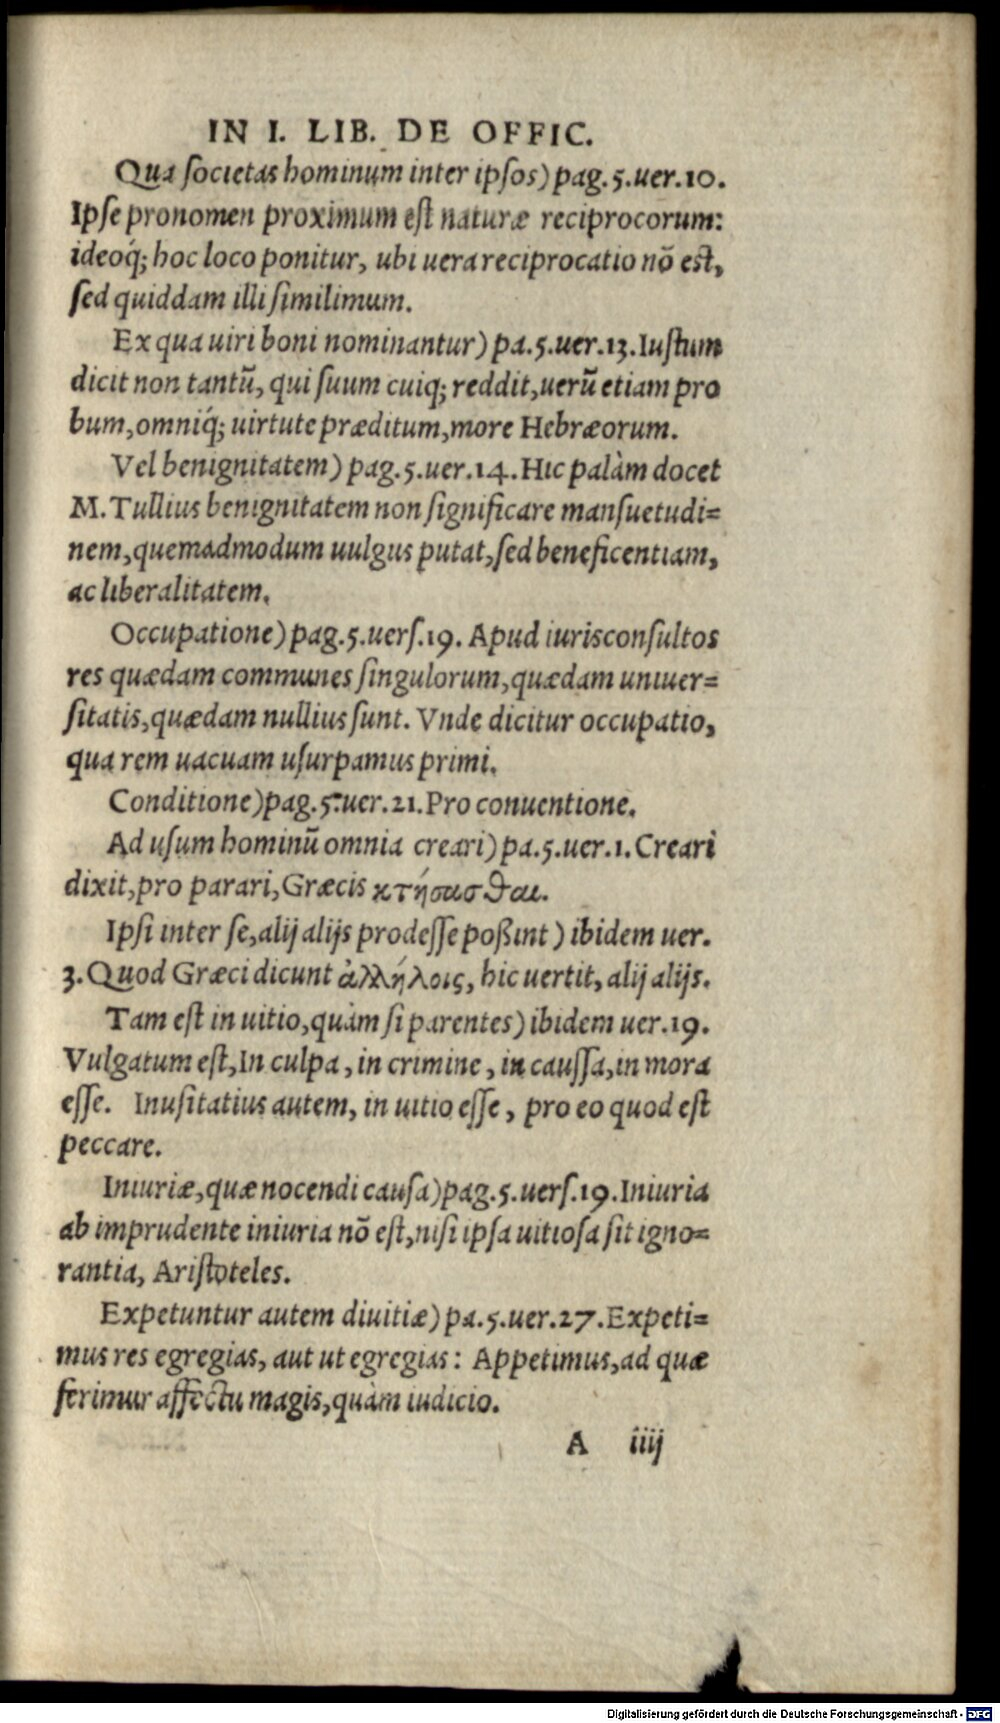 IN I. LIB. DE OFFIC.
Qua ſocietas hominum inter ipſos) pag.5.uer.10.
Ipſe pronomen proximum eſt naturæ reciprocorum:
ideoq́; hoc loco ponitur, ubi uera reciprocatio nõ eſt,
ſed quiddam illi ſimilimum.
Ex qua uiri boni nominantur) pa.5.uer.13.Iuſtum
dicit non tantũ, qui ſuum cuiq; reddit,uerũ etiam pro
bum,omniq́; uirtute præditum,more Hebræorum.
Vel benignitatem) pag.5.uer.14.Hic palàm docet
M.Tullius benignitatem non ſignificare manſuetudi=
nem,quemadmodum uulgus putat,ſed beneficentiam,
ac liberalitatem.
Occupatione) pag.5.uerſ.19. Apud iurisconſultos
res quædam communes ſingulorum,quædam uniuer=
ſitatis,quædam nullius ſunt. Vnde dicitur occupatio,
qua rem uacuam uſurpamus primi.
Conditione)pag.5.uer.21.Pro conuentione.
Ad uſum hominũ omnia creari) pa.5.uer.1.Creari
dixit,pro parari,Græcis κτήσασθαι.
Ipſi inter ſe,alij alijs prodeſſe poßint) ibidem uer.
3.Quod Græci dicunt ἀλλήλοις, hic uertit, alij alijs.
Tam eſt in uitio,quàm ſi parentes) ibidem uer.19.
Vulgatum eſt,In culpa, in crimine, in cauſſa,in mora
eſſe. Inuſitatius autem, in uitio eſſe, pro eo quod eſt
peccare.
Iniuriæ,quæ nocendi cauſa)pag.5.uerſ.19.Iniuria
ab imprudente iniuria nõ eſt,niſi ipſa uitioſa ſit igno=
rantia, Ariſtoteles.
Expetuntur autem diuitiæ) pa.5.uer.27.Expeti=
mus res egregias, aut ut egregias: Appetimus,ad quæ
ferimur affectu magis,quàm iudicio.
A iiij
Digitalisierung gefördert durch die Deutsche Forschungsgemeinschaft - DFG